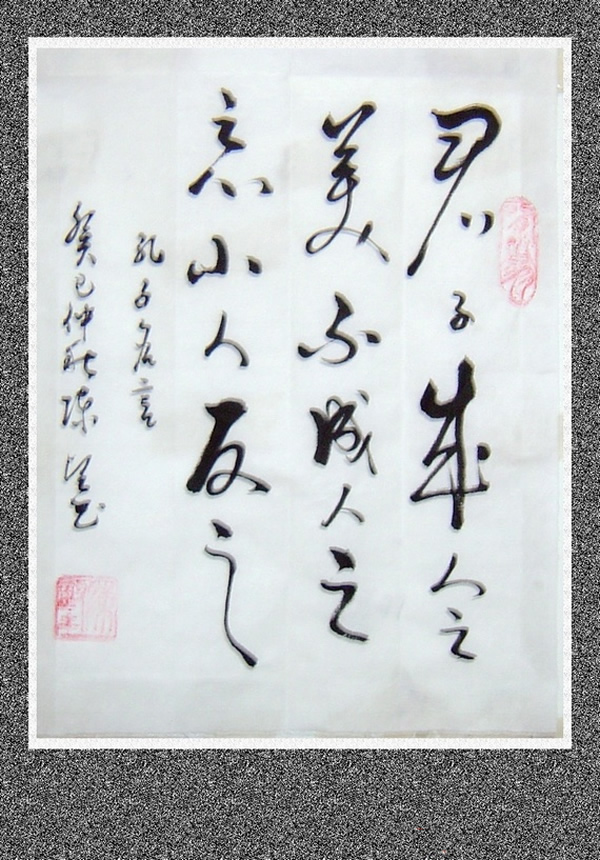 君子成人之
美不成人之
恶小人反之
孔子名言
癸巳仲秋陈